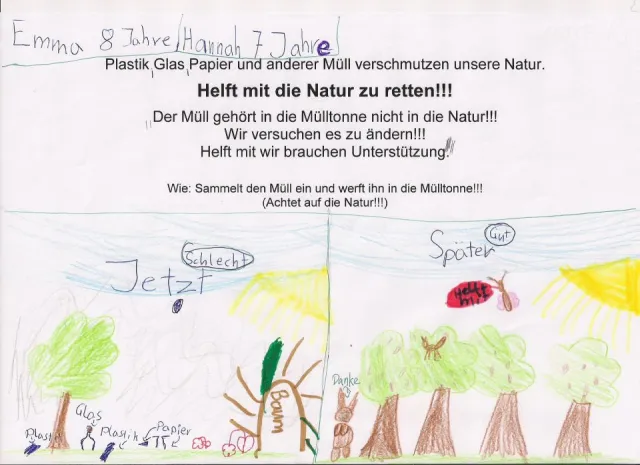 Emma 8 Jahre Hannah 7 Jahre
Plastik, Glas, Papier und anderer Müll verschmutzen unsere Natur.
Helft mit die Natur zu retten!!!
"Der Müll gehört in die Mülltonne nicht in die Natur!!!
Wir versuchen es zu ändern!!!
Helft mit wir brauchen Unterstützung!"
Wie: Sammelt den Müll ein und werft ihn in die Mülltonne!!!
(Achtet auf die Natur!!!)
Schlecht
Jetzt
Gut
Später
Helft mit
Danke
Baum
Glas
Plastik
Plastik
Papier